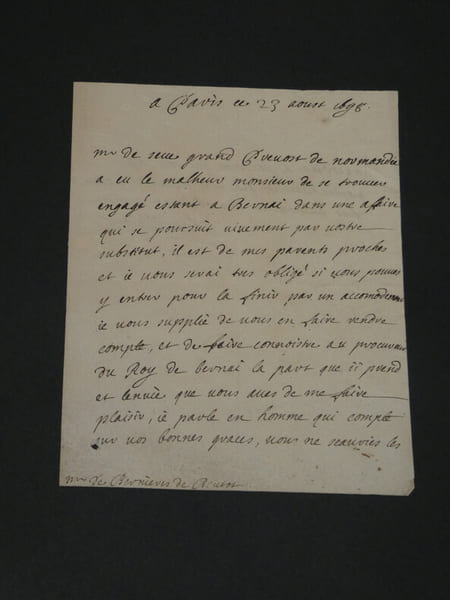 a Paris ce 23 aoust 1698.
mr de seve grand Prevost de normandie
a eu le malheur monsieur de se trouver
engagé estant a Bernai dans une affaire
qui se poursuit vivement par vostre
substitut, il est de mes parents proches
et ie vous serai tres obligé si vous pouves
y entrer pour la finir par un accomodement
ie vous supplie de vous en faire rendre
compte, et de faire connoistre au procureur
du Roy de bernai la part que ii prend
et lenvie que vous aves de me faire
plaisir, ie parle en homme qui compte
sur vos bonnes graces, vous ne scauries les
mr de Bernieres de